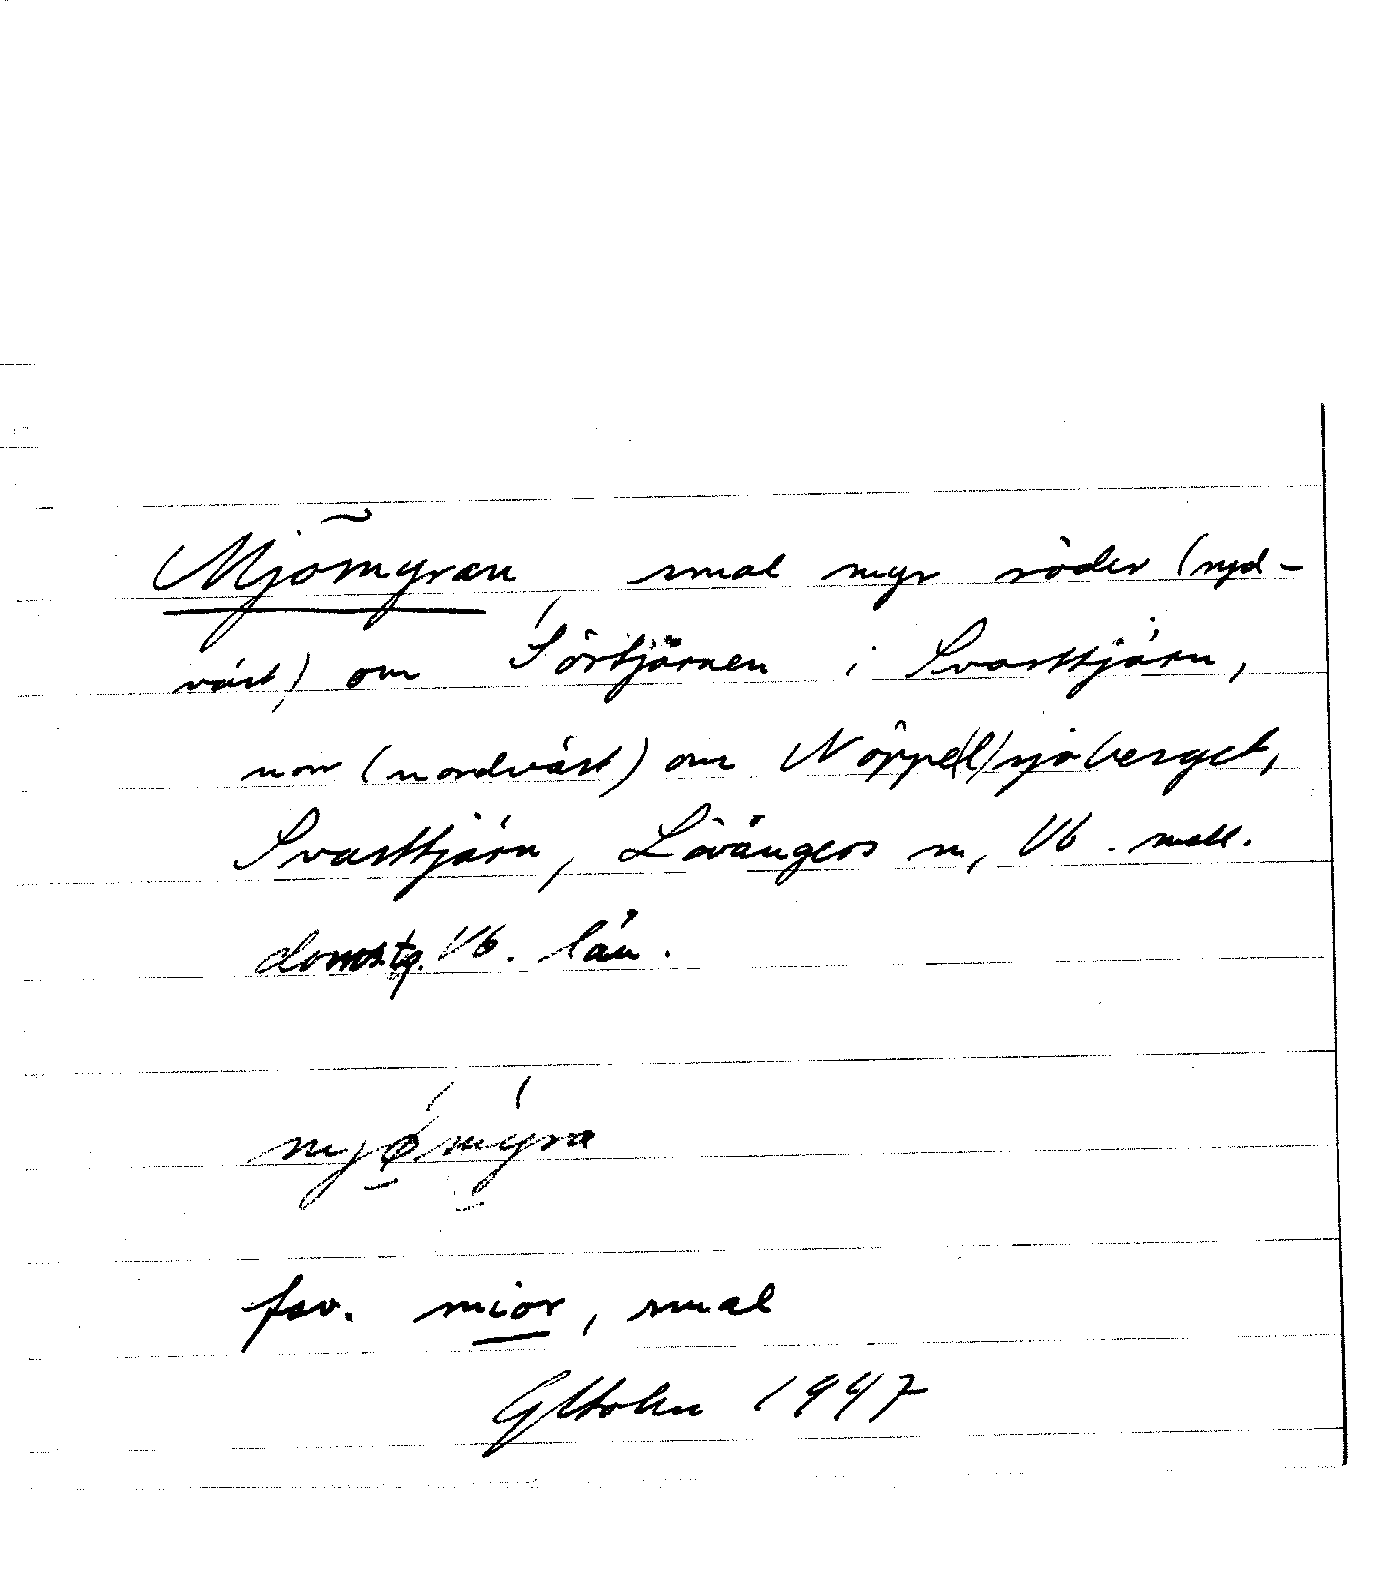 Mjömyran smal myr söder (syd-
väst) om Sörtjärnen i Svarttjärn,
norr (nordväst) om Nöppel(l)sjöberget,
Svarttjärn, Lövångers sn, Vb. mell.
doms.tg. Vb. län.
mjø̀mỳra
fsv. mior, smal
1947